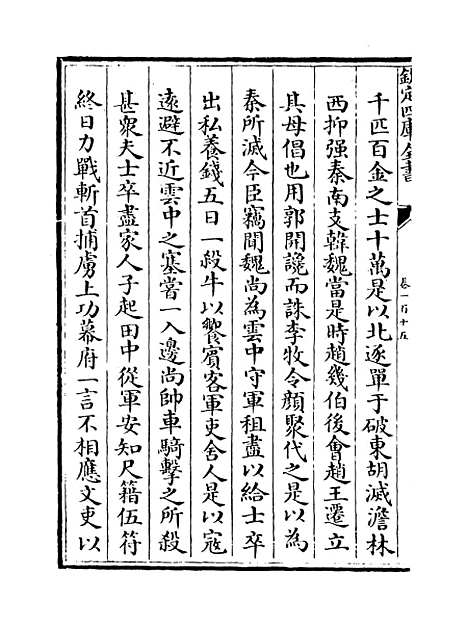 欽定四庫全書
卷一百十五
千匹百金之士十萬是以北逐單于破東胡滅澹林
西抑强秦南支韓魏當是時趙幾伯後會趙王遷立
其母倡也用郭開讒而誅李牧令顔聚代之是以為
秦所滅今臣竊聞魏尚為雲中守軍租盡以給士卒
出私養錢五日一殺牛以饗賓客軍吏舍人是以寇
逺避不近雲中之塞嘗一入邊尚帥車騎擊之所殺
甚衆夫士卒盡家人子起田中從軍安知尺籍伍符
終日力戰斬首捕虜上功幕府一言不相應文吏以